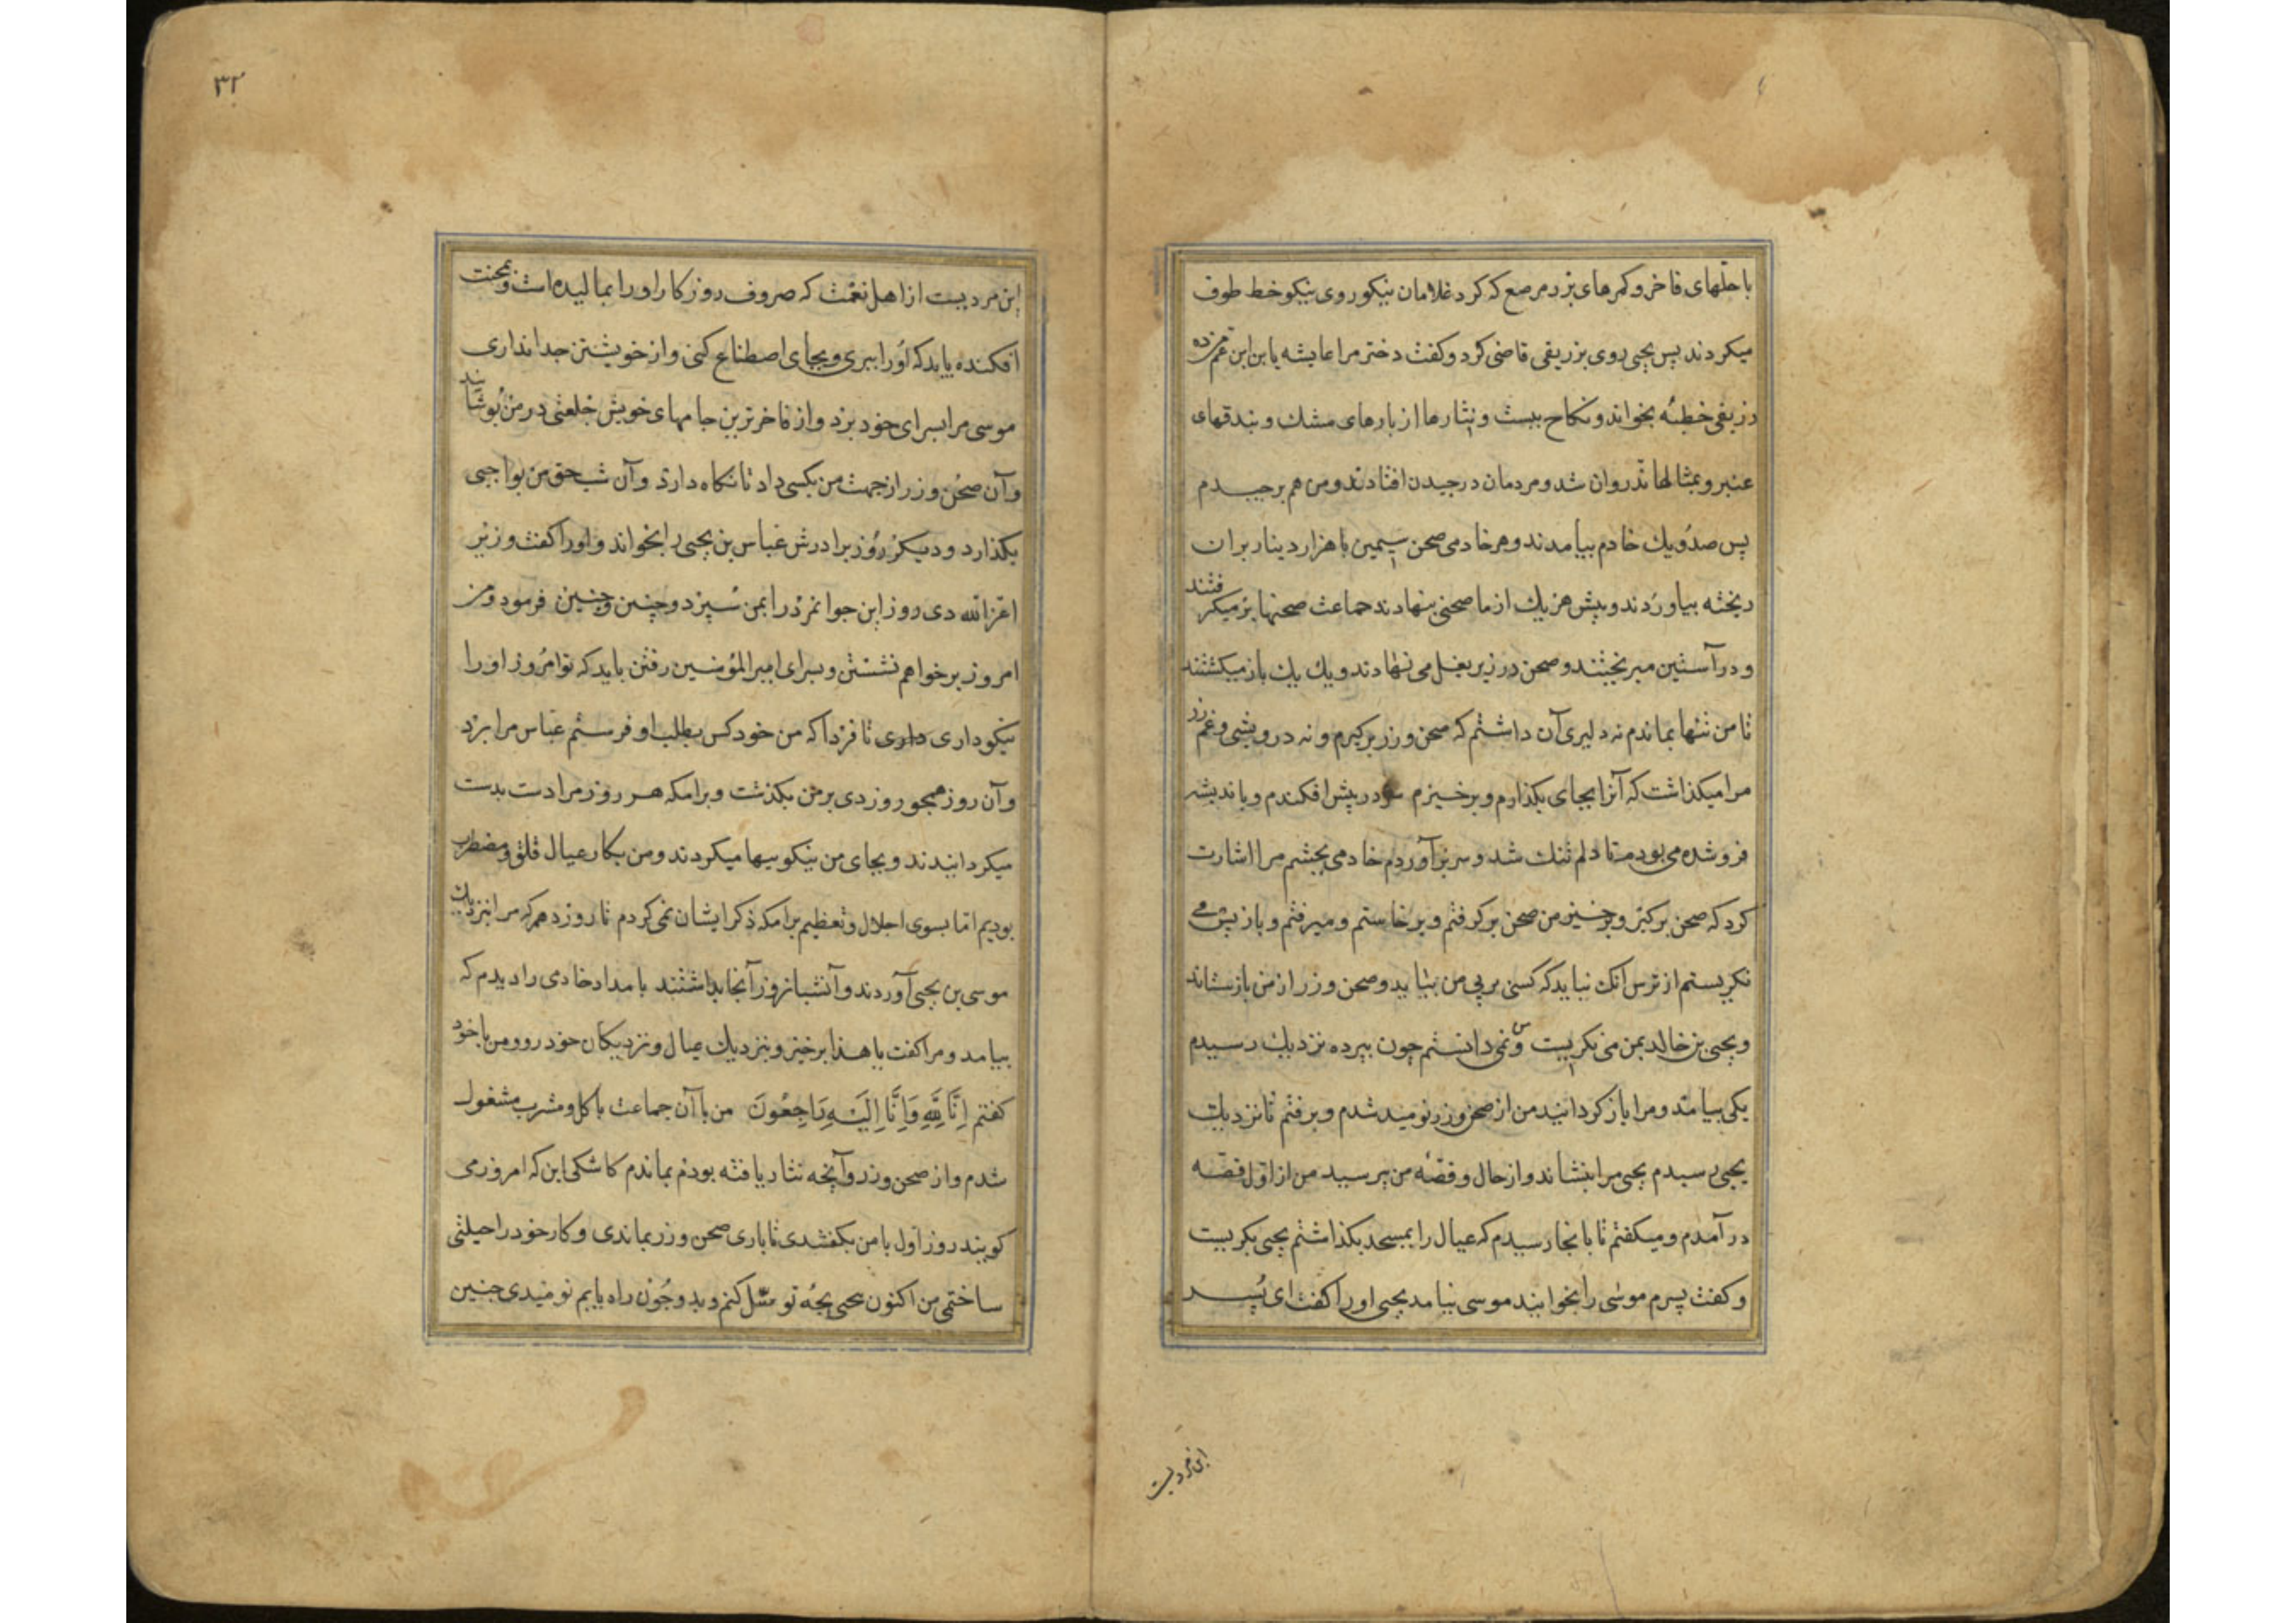 با حلّهای فاخر و کمرهای بزر مرصع که کرد غلامان نیکو روی نیکو خط طوف
میکردند پس یحیی روی بزریقی قاضی کرد و کفت دختر مرا عایشه یا بن ابن عم
زریقی خطبه بخواند و نکاح ببست و نثارها از بارهای مشک و بندقهای
عنبر و تمثالها ندّ روان شد و مردمان در چیدن افتادند و من هم برچیدم
پس صد و یک خادم بیامدند و هر خادمی صحن سیمین با هزار دینار بران
ریخته بیاوردند و پیش هر یک از ما صحنی بنهادند جماعت صحنها بر میکرفتند
و در آستین میریختند و صحن در زیر بغل می نهادند و یک یک باز میکشتند
تا من تنها بماندم نه دلیری آن داشتم که صحن و زر برکیرم و نه درویشی و غم زر
مرا میکذاشت که آنرا بجای بکذارم و برخیزم سر در پیش افکندم و باندیشه
فرو شده می بودم تا دلم تنک شد و سر برآوردم خادمی بچشم مرا اشارت
کرد که صحن برکیر و برخیز من صحن برکرفتم و برخاستم و میرفتم و باز پس می
نکریستم از ترس آنک نباید که کسی بر پی من بیاید و صحن و زر از من بازستاند
و یحیی بن خالد بمن می نکریست و من نمی دانستم چون بپرده نزدیک رسیدم
یکی بیامد و مرا باز کردانید من از صحن و زر نومید شدم و برفتم تا نزدیک
یحیی رسیدم یحیی مرا بنشاند و از حال و قصّه من پرسید من از اول قصّه
در آمدم و میکفتم تا بانجا رسیدم که عیال را بمسجد بکذاشتم یحیی بکریست
و کفت پسرم موسی را بخوانید موسی بیامد یحیی او را کفت ای پسر
این مردیست
۳۲
این مردیست از اهل نعمت که صروف روزکار او را بمالیده است و بمحنت
افکنده باید که او را ببری و بجای اصطناع کنی و از خویشتن جدا نداری
موسی مرا بسرای خود برد و از فاخرترین جامهای خویش خلعتی در من پوشانید
و آن صحن و زر از جهت من بکسی داد تا نکاه دارد و آن شب حق من بواجبی
بکذارد و دیکر روز برادرش عباس بن یحیی را بخواند و او را کفت وزیر
اعزّالله دی روز این جوانمرد را بمن سپرد و چنین و چنین فرمود و من
امروز برخواهم نشستن و بسرای امیر المؤمنین رفتن باید که تو امروز او را
نیکو داری داری تا فردا که من خود کس بطلب او فرستم عباس مرا ببرد
و آن روز همچو روز دی بر من بکذشت و برامکه هر روز مرا دست بدست
میکردانیدند و بجای من نیکوییها میکردند و من بکار عیال قلق و مضطرب
بودیم اما بسوی اجلال و تعظیم برامکه ذکر ایشان نمی کردم تا روز دهم که مرا بنزدیک
موسی بن یحیی آوردند و آن شبانروز آنجا بداشتند بامداد خادمی را دیدم که
بیامد و مرا کفت یا هذا برخیز و بنزدیک عیال و نزدیکان خود رو و من با خود
کفتم اِنَّا لِلّٰهِ وَاِنَّا اِلَیْهِ رَاجِعُونَ من با آن جماعت باکل و مشرب مشغول
شدم و از صحن و زر و آنچه نثار یافته بودم بماندم کاشکی این که امروز می
کویند روز اول با من بکفتندی تا باری صحن و زر بماندی و کار خود را حیلتی
ساختمی من اکنون بچه توسّل کنم و بدو چون راه یابم نومیدی چنین